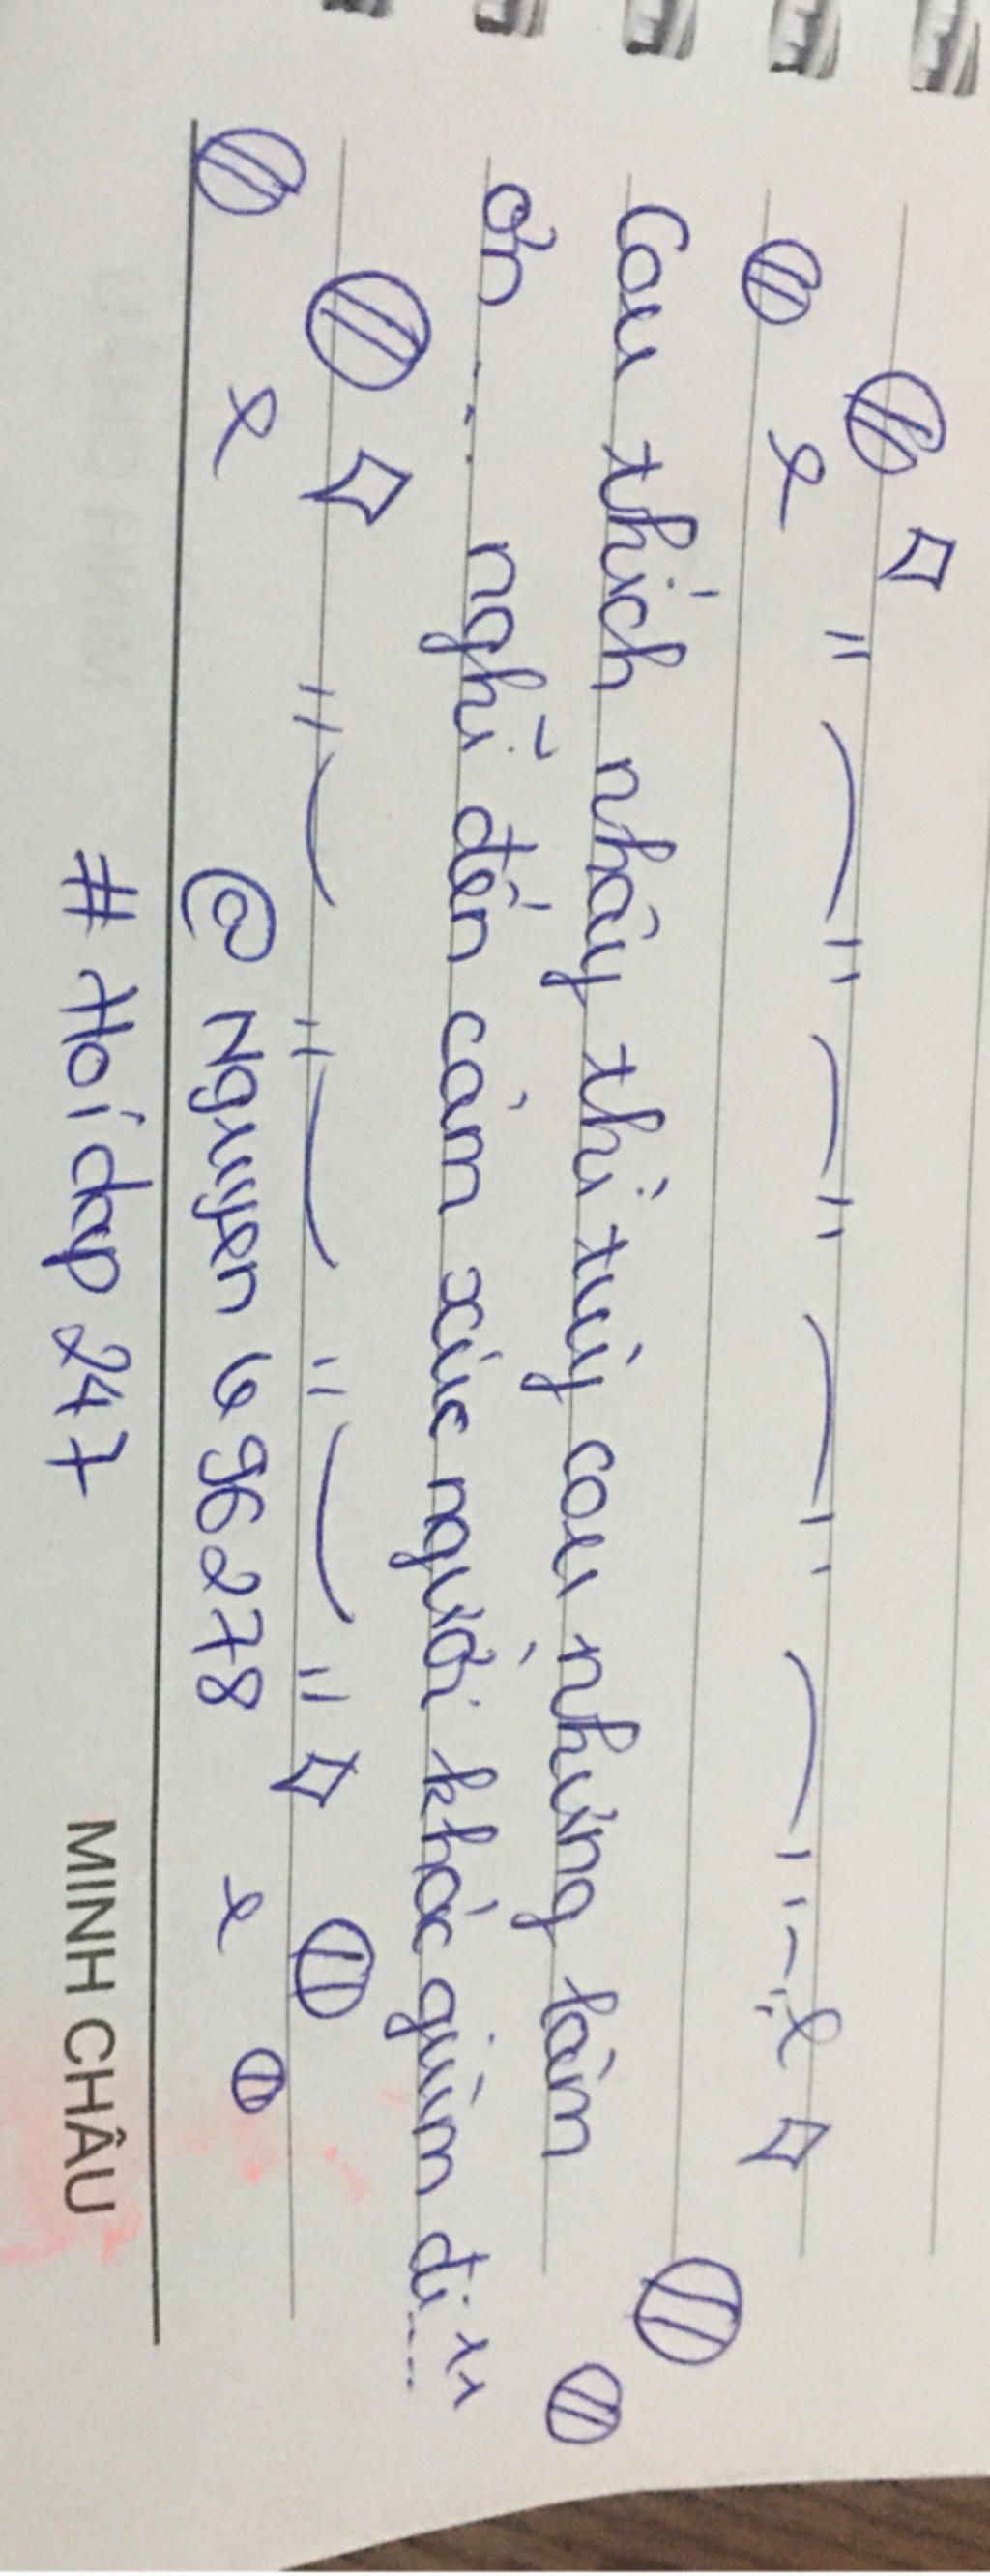 Cou thích nhây thì tuỳ cou nhưng làm
ơn ... nghĩ đến cảm xúc người khác giùm đi ....
@ Nguyen 696278
# Hoidap 247
MINH CHÂU